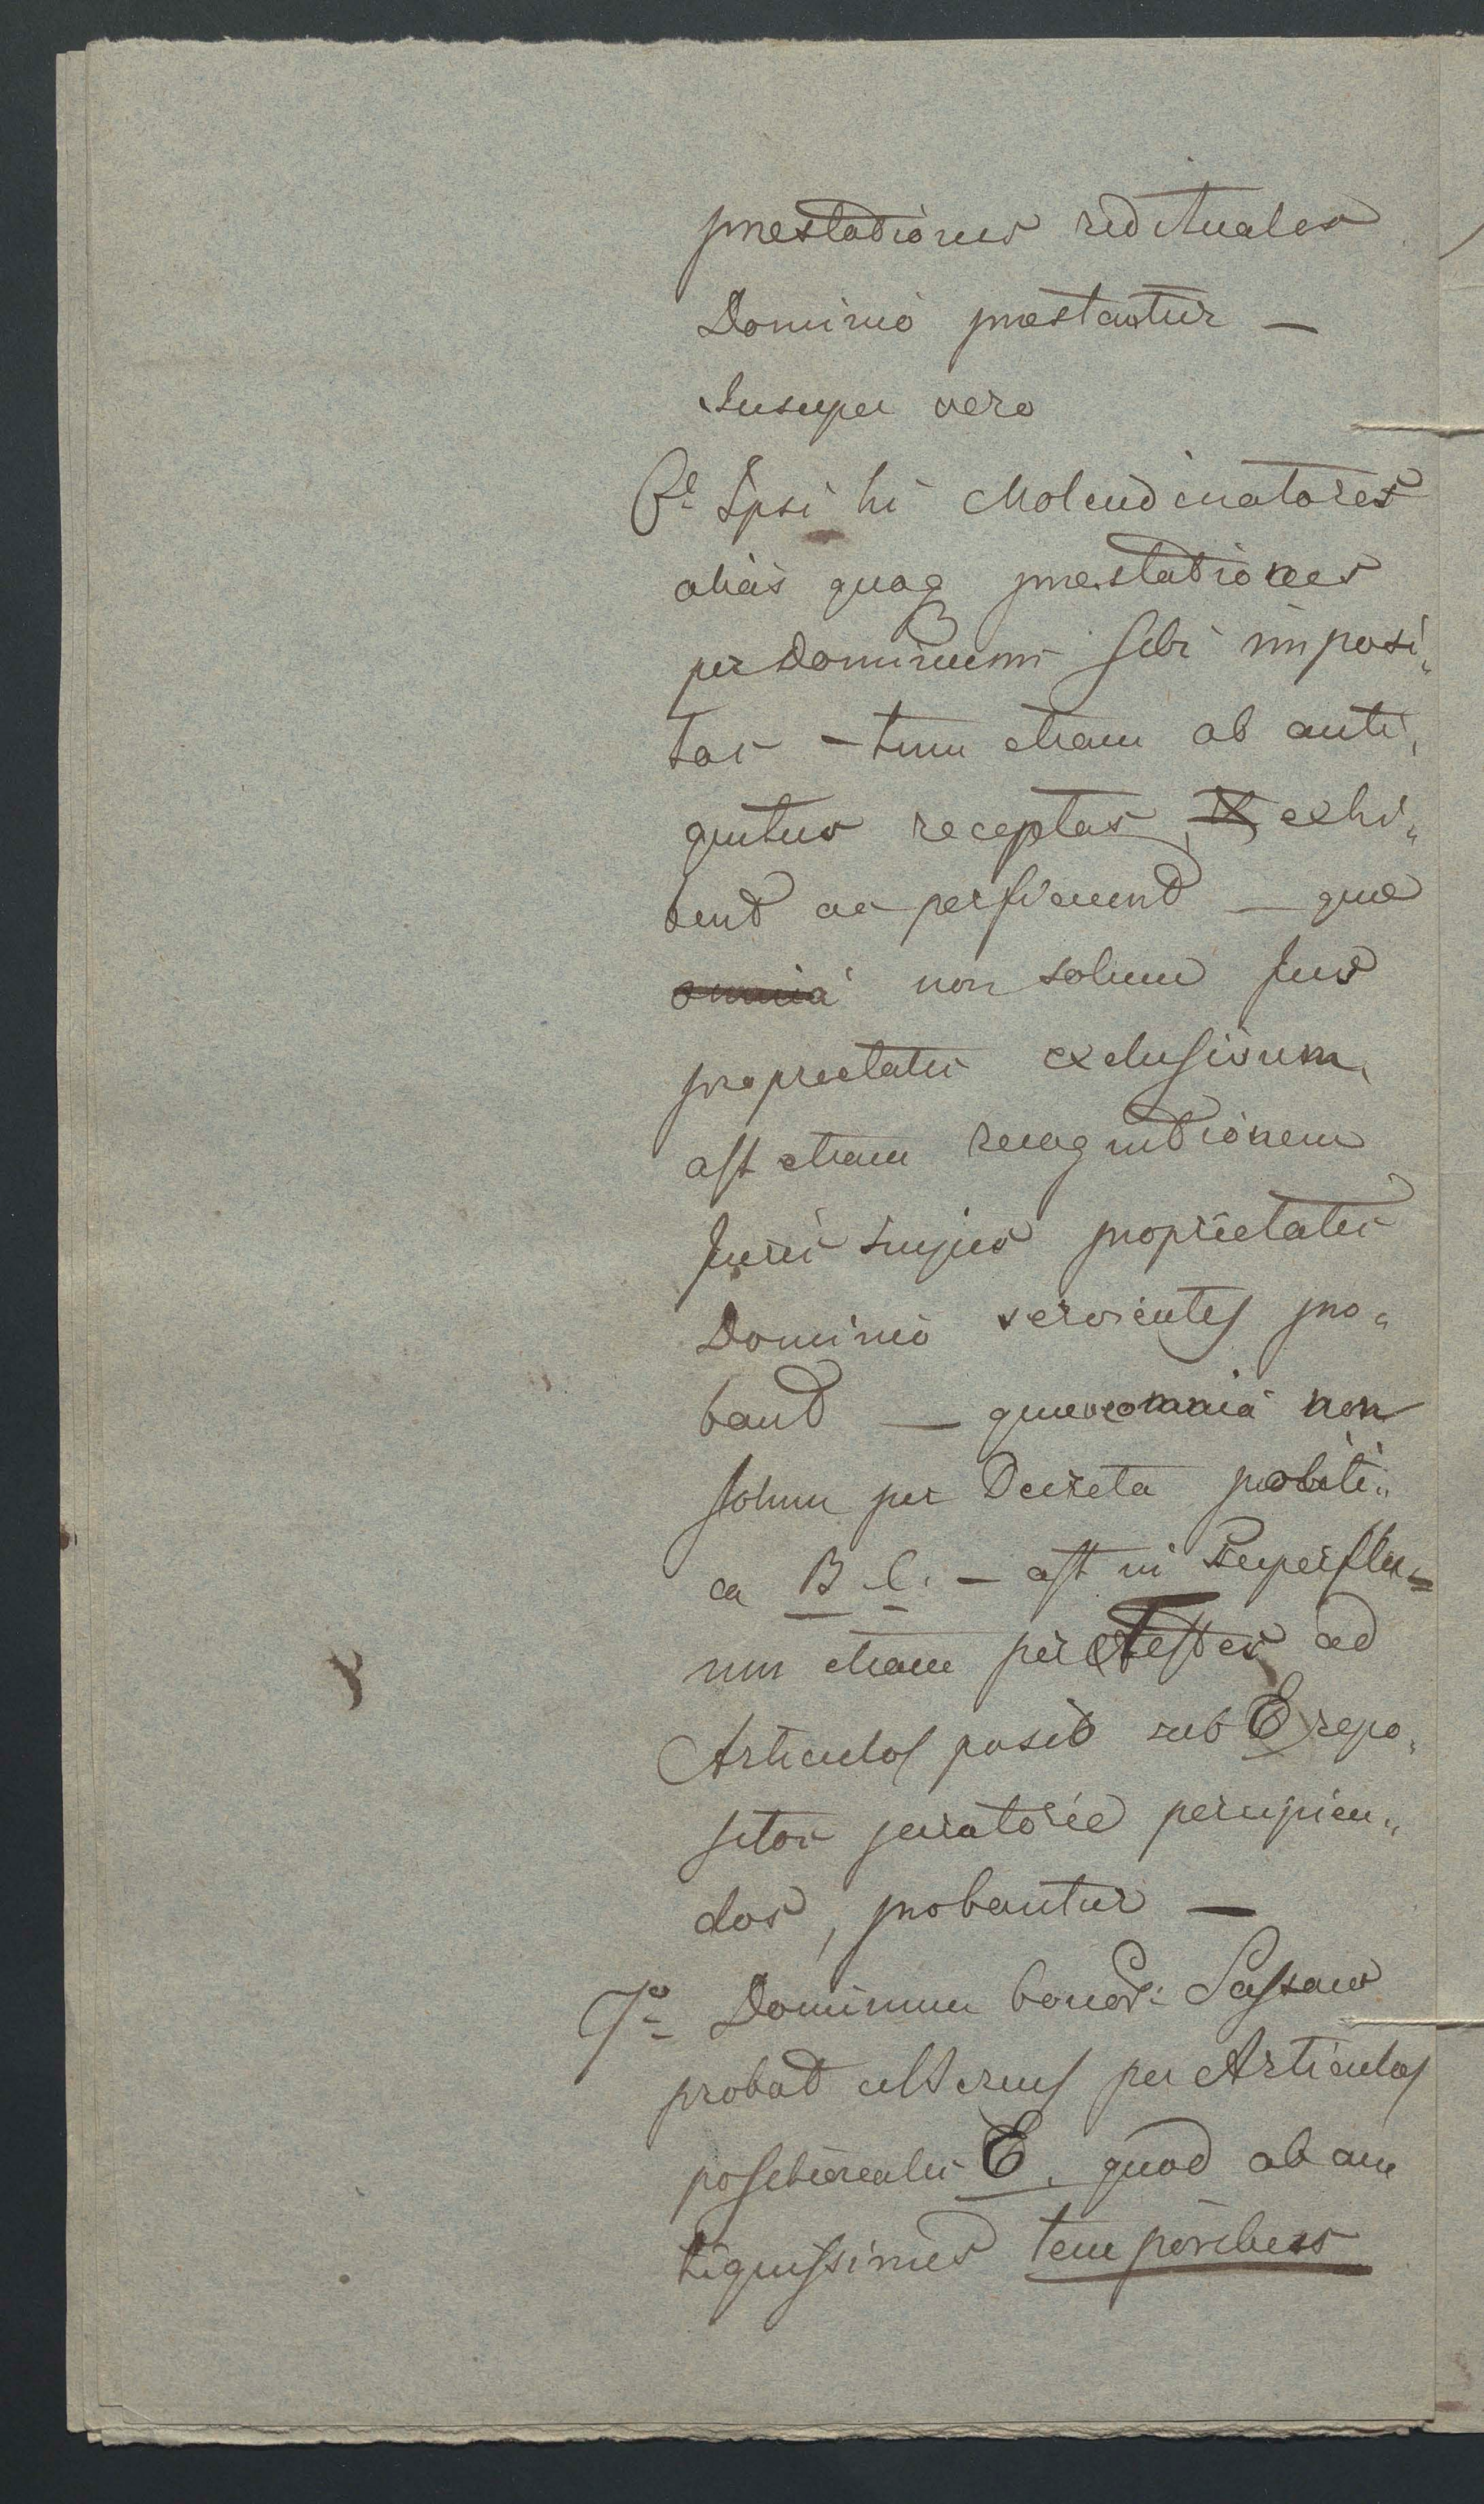 prestationes redituales
Dominio prestantur —
Insuper vero
6o Ipsi hi Molendinatores
alias quoq prestationes
per Dominium sibi imposi„
tas – tum etiam ab anti„
quitus receptas, exhi„
bent ac perficiunt — quae
omnia non solum Jus
proprietatis exclusivum,
ast etiam recognitionem
Juris hujus proprietatis
Dominio servientes pro„
bant — quae omnia non
solum per Decreta politi„
ca B C. – ast in Superflu„
um etiam per Testes ad
Articulos posit sub E repo„
sitos juratorie percipien„
dos, probantur —
7o Dominium bonor: Sassow
probat ulterius per Articulos
positionales E. quod ab an
tiquissimis temporibus